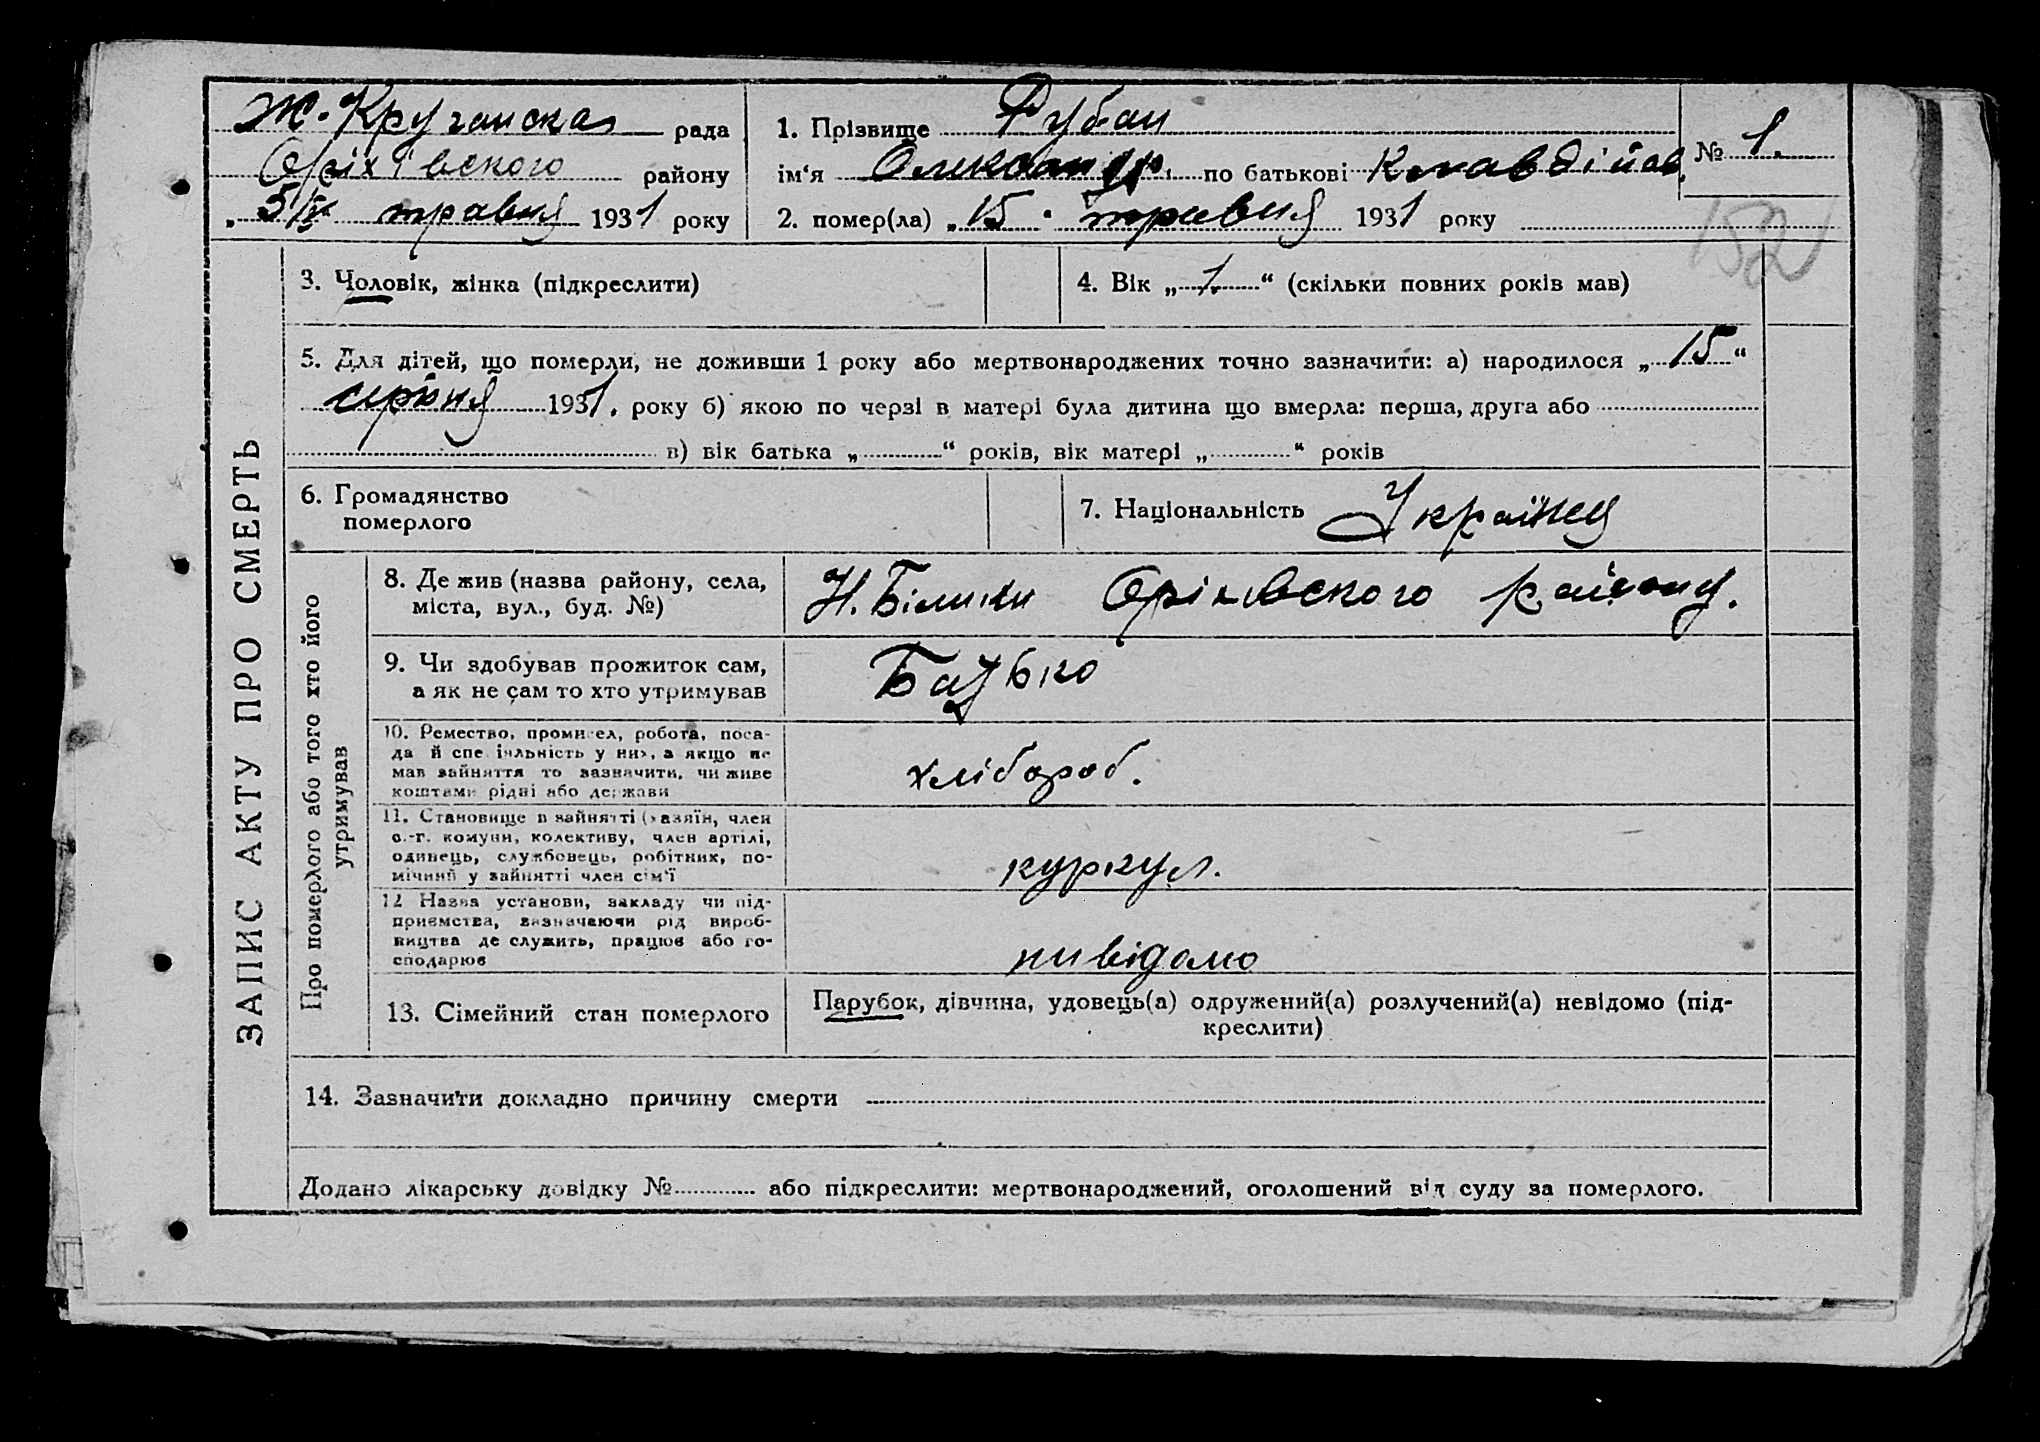 Ж. Кручанска рада
Оріхівского району
„ 5/IV травня 1931 року
1. Прізвище Рубан
ім‘я Олександр. по батькові Клавдійов.
№ 1.
2. помер(ла) „ 15 " травня 1931 року
152
ЗАПИС АКТУ ПРО СМЕРТЬ
3. Чоловік, жінка (підкреслити)
4. Вік „ 1. “ (скільки повних років мав)
5. Для дітей, що померли, не доживши 1 року або мертвонароджених точно зазначити: а) народилося „ 15 “
серпня 1931. року б) якою по черзі в матері була дитина що вмерла: перша, друга або
в) вік батька „ “ років, вік матері „ “ років
6. Громадянство
померлого
7. Національність Українец
Про померлого або того хто його
утримував
8. Де жив (назва району, села,
міста, вул., буд. №)
Н. Білики Оріхівского району.
9. Чи здобував прожиток сам,
а як не сам то хто утримував
Батько
10. Ремество, промисел, робота, поса-
да й спеціяльність у них, а якщо не
мав зайняття то зазначити, чи живе
коштами рідні або держави
хлібороб.
11. Становище в зайнятті (хазяїн, член
с.-г. комуни, колективу, член артілі,
одинець, службовець, робітник, по-
мічний у зайнятті член сім'ї
куркул.
12 Назва установи, закладу чи під-
приємства, зазначаючи рід вироб-
ництва де служить, працює або го-
сподарює
нивідомо
13. Сімейний стан померлого
Парубок, дівчина, удовець(а) одружений(а) розлучений(а) невідомо (під-
креслити)
14. Зазначити докладно причину смерти
Додано лікарську довідку № або підкреслити: мертвонароджений, оголошений від суду за померлого.